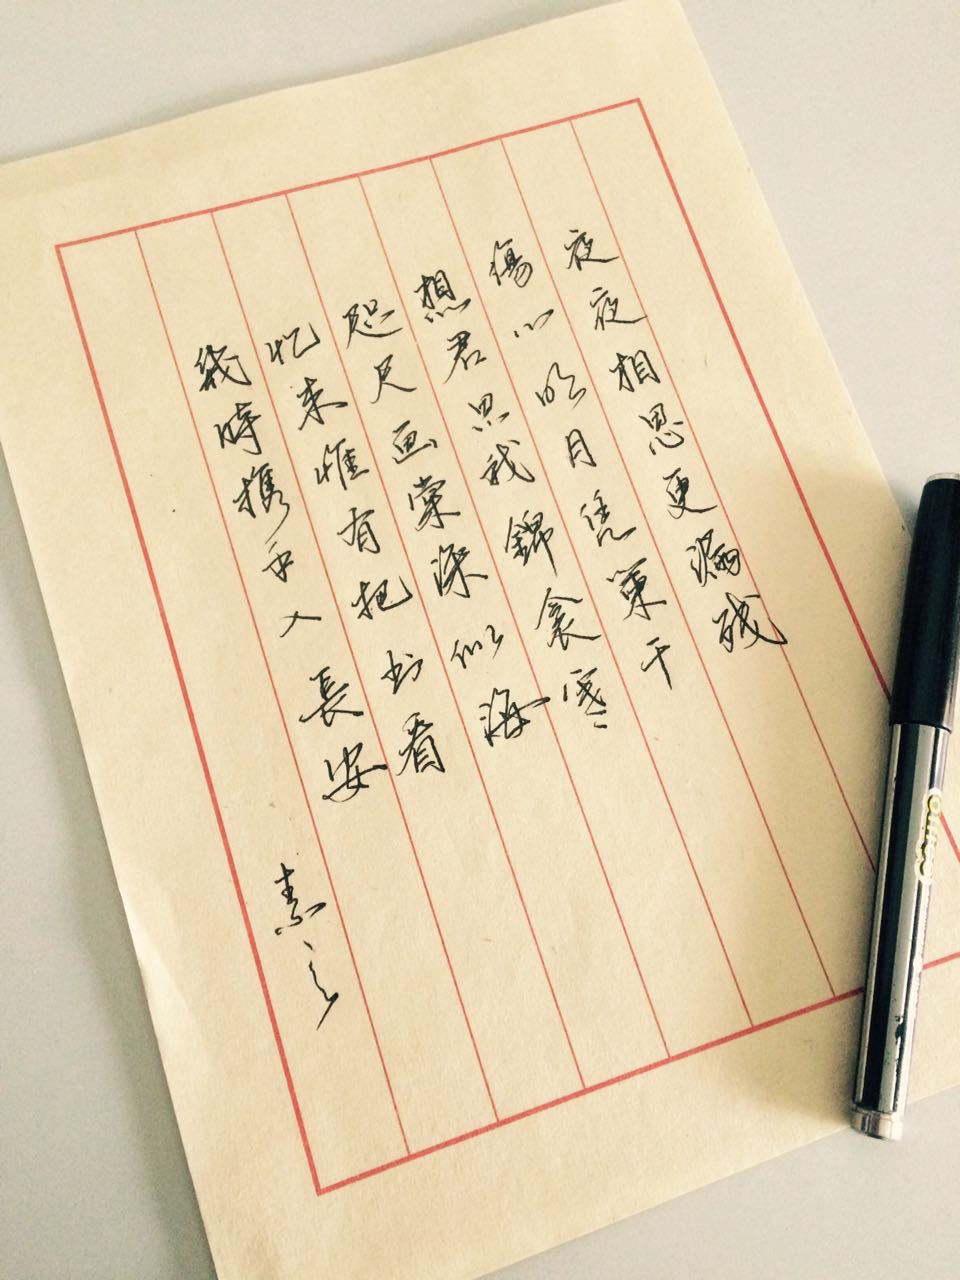 夜夜相思更漏残
傷心明月凭闌干
想君思我錦衾寒
咫尺画堂深似海
忆来惟有把书看
幾時携手入長安
素之